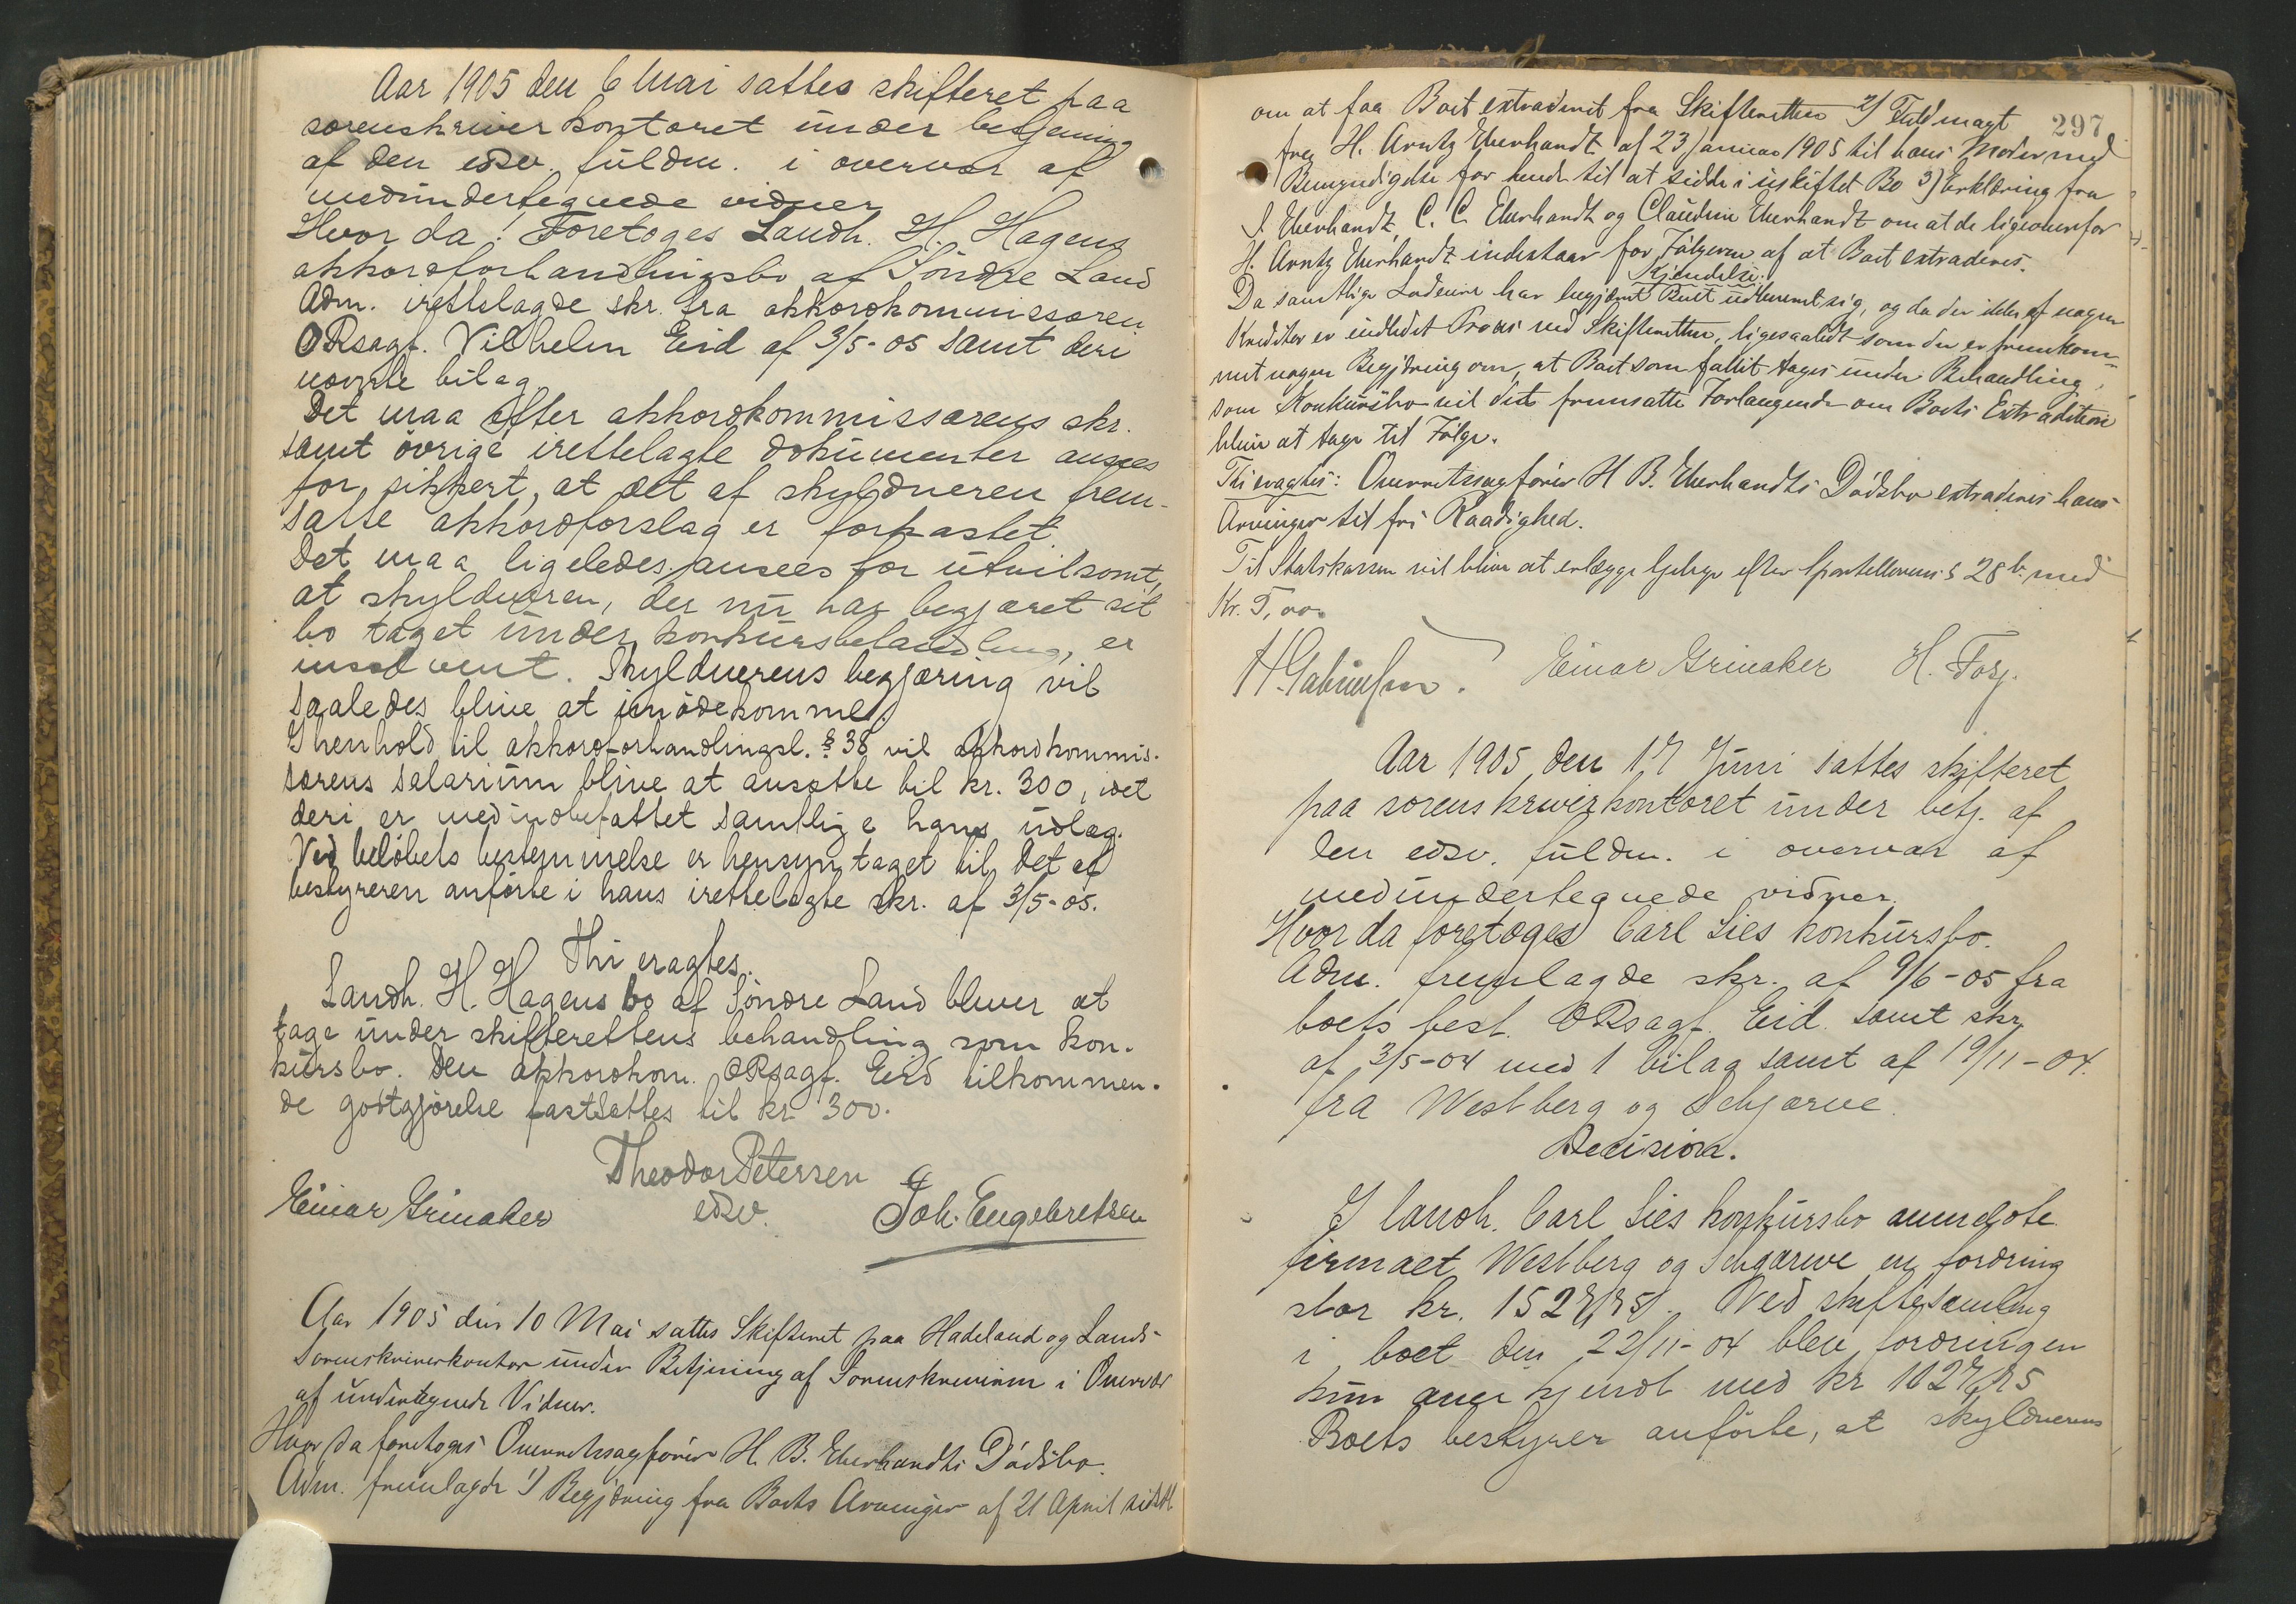 Aar 1905 den 6 Mai sattes skifteret paa
sorenskriverkontoret under betjening
af den edsv. fuldm. i overvær af
medundertegnede vidner
Hvor da: Foretoges Landh. H. Hagens
akkordforhandlingsbo af Söndre Land
Adm. irettelagde skr. fra akkordkommissæren
ORsagf. Vilhelm Eid af 3/5-05 samt deri
nævnte bilag.
Det maa efter akkordkommissærens skr.
samt övrige irettelagte dokumenter ansees
for sikkert, at det af skyldneren frem-
satte akkordforslag er forkastet.
Det maa ligeledes ansees for utvilsomt,
at skyldneren, der nu har begjæret sit
bo taget under konkursbehandling, er
insolvent. Skyldnerens begjæring vil
saaledes blive at imödekomme.
I henhold til akkordforhandlingsl. § 38 vil akkordkommis-
særens salarium blive at ansætte til kr. 300, idet
deri er medindbefattet samtlige hans udlæg.
Ved belöbets bestemmelse er hensyn taget til det af
bestyreren anförte i hans irettelagte skr. af 3/5-05.
Thi eragtes.
Landh. H. Hagens bo af Söndre Land bliver at
tage under skifterettens behandling som kon-
kursbo. Den akkordkom. ORsagf. Eid tilkommen-
de godtgjörelse fastsættes til kr. 300.
Theodor Petersen
edsv.
Einar Grinaker Joh. Engebretsen
Aar 1905 den 10 Mai sattes Skifteret paa Hadeland og Lands
Sorenskriverkontor under Betjening af Sorenskriveren i Overvær
af undertegnede Vidner.
Hvor da foretoges Overretssagförer H. B. Eberhardts Dödsbo.
Adm. fremlagde 1) Begjæring fra Boets Arvinger af 21 April sidstl.
297
om at faa Boet extraderet fra Skifteretten 2) Fuldmagt
fra H. Arntz Eberhardt af 23 Januar 1905 til hans Moder med
Bemyndigelse for hende til at sidde i uskiftet Bo 3) Erklæring fra
J. Eberhardt, C. C. Eberhardt og Claudine Eberhardt om at de ligeoverfor
H. Arntz Eberhardt indestaar for Fölgerne af at Boet extraderes.
Kjendelse:
Da samtlige Lodeiere har begjæret Boet udleveret sig, og da der ikke af nogen
Kreditor er indledet Proces ved Skifteretten, ligesaalidt som der er fremkom-
met nogen Begjæring om, at Boet som fallit tages under Behandling
som Konkursbo vil det fremsatte Forlangende om Boets Extradition
blive at tage til Fölge.
Thi eragtes: Overretssagförer H B. Eberhardts Dödsbo extraderes hans
Arvinger til fri Raadighed.
Til Statskassen vil blive at erlægge Gebyr efter Sportellovens § 28 b. med
Kr. 5,00.
Einar Grinaker H. Torp.
Aar 1905 den 17 Juni sattes skifteret
paa sorenskriverkontoret under betj. af
den edsv. fuldm. i overvær af
medundertegnede vidner.
Hvor da foretoges Carl Lies konkursbo.
Adm. fremlagde skr. af 9/6-05 fra
boets best. ORsagf. Eid samt skr.
af 3/5-04 med 1 bilag samt af 19/11-04.
fra Westberg og Schjærve.
Decision.
I landh. Carl Lies konkursbo anmeldte
firmaet Westberg og Schjærve en fordring
stor kr. 1527,75. Ved skiftesamling
i boet den 22/11-04 blev fordringen
kun anerkjendt med kr 1027,75
Boets bestyrer anförte, at skyldnerens